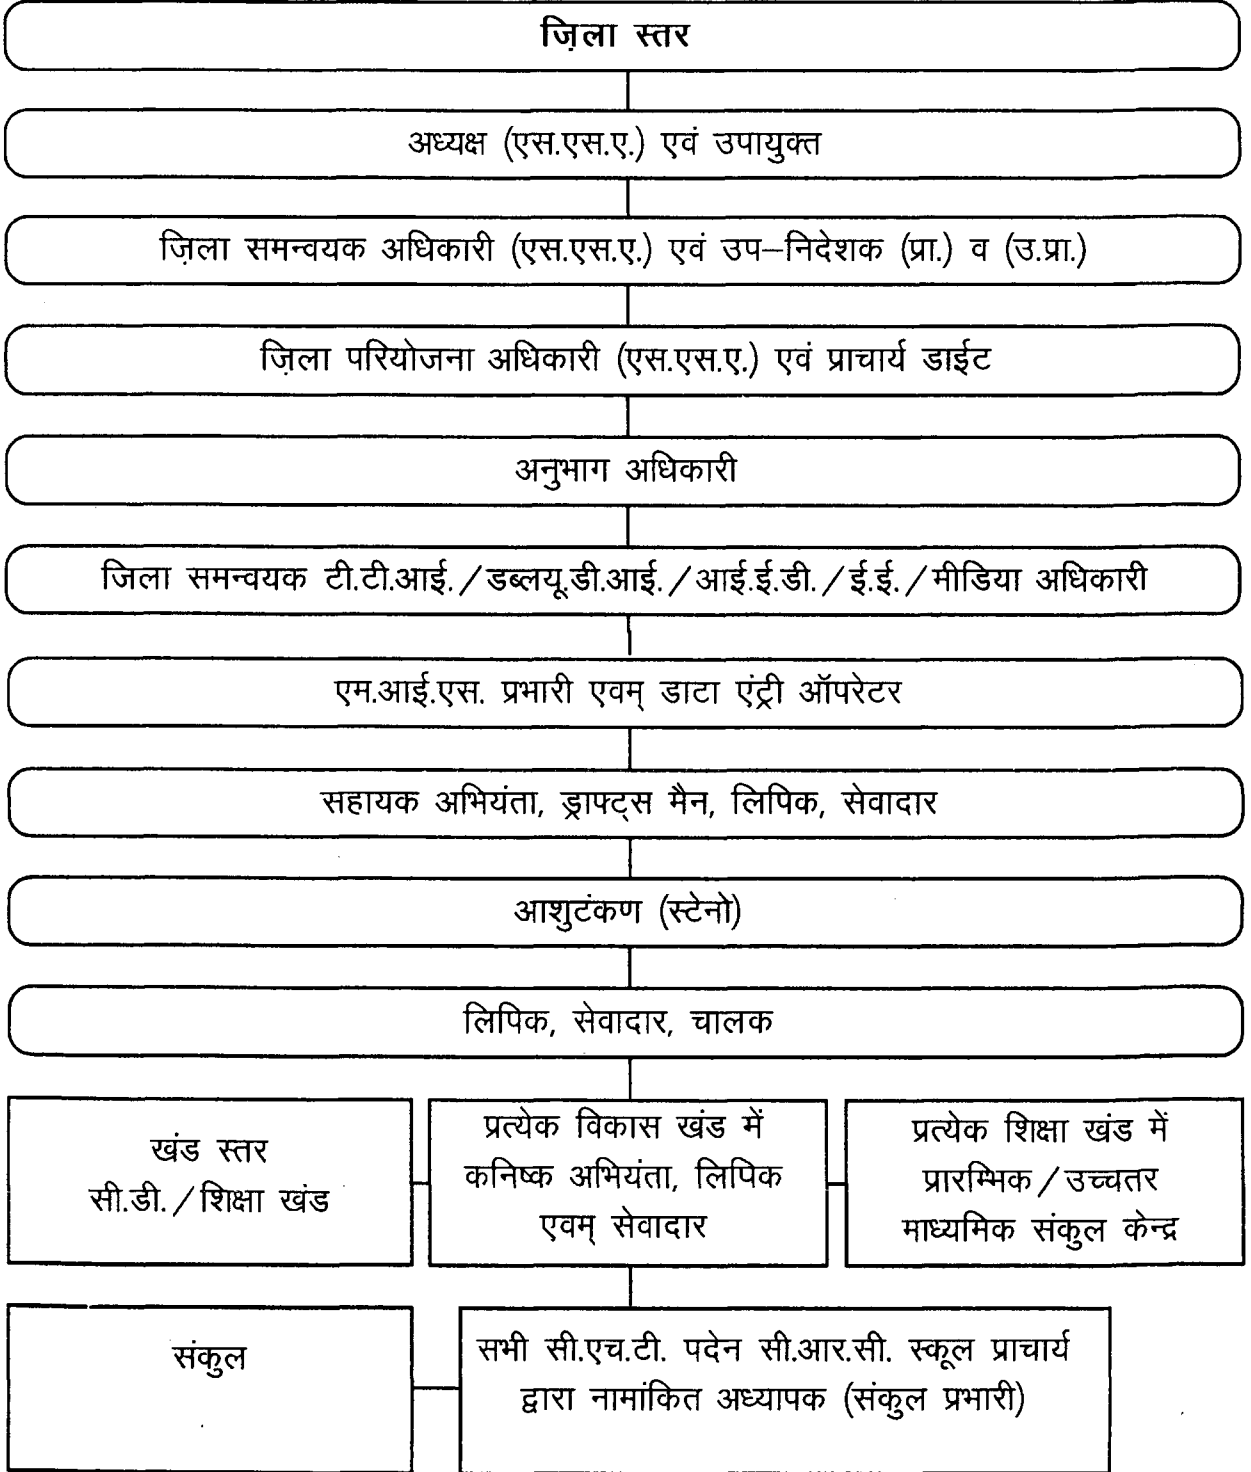 ज़िला स्तर
अध्यक्ष (एस.एस.ए.) एवं उपायुक्त
ज़िला समन्वयक अधिकारी (एस.एस.ए.) एवं उप–निदेशक (प्रा.) व (उ.प्रा.)
ज़िला परियोजना अधिकारी (एस.एस.ए.) एवं प्राचार्य डाईट
अनुभाग अधिकारी
जिला समन्वयक टी.टी.आई./डब्लयू.डी.आई./आई.ई.डी./ई.ई./मीडिया अधिकारी
एम.आई.एस. प्रभारी एवम् डाटा एंट्री ऑपरेटर
सहायक अभियंता, ड्राफ्ट्स मैन, लिपिक, सेवादार
आशुटंकण (स्टेनो)
लिपिक, सेवादार, चालक
खंड स्तर
सी.डी./शिक्षा खंड
प्रत्येक विकास खंड में
कनिष्क अभियंता, लिपिक
एवम् सेवादार
प्रत्येक शिक्षा खंड में
प्रारम्भिक/उच्चतर
माध्यमिक संकुल केन्द्र
संकुल
सभी सी.एच.टी. पदेन सी.आर.सी. स्कूल प्राचार्य
द्वारा नामांकित अध्यापक (संकुल प्रभारी)